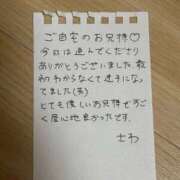 ご自宅のお兄様♡
今日は選んでくださり
ありがとうございました。敬
わからなくて迷子になっ
てました(笑)
とても優しいお兄様です
居心地良かったです。
さわ